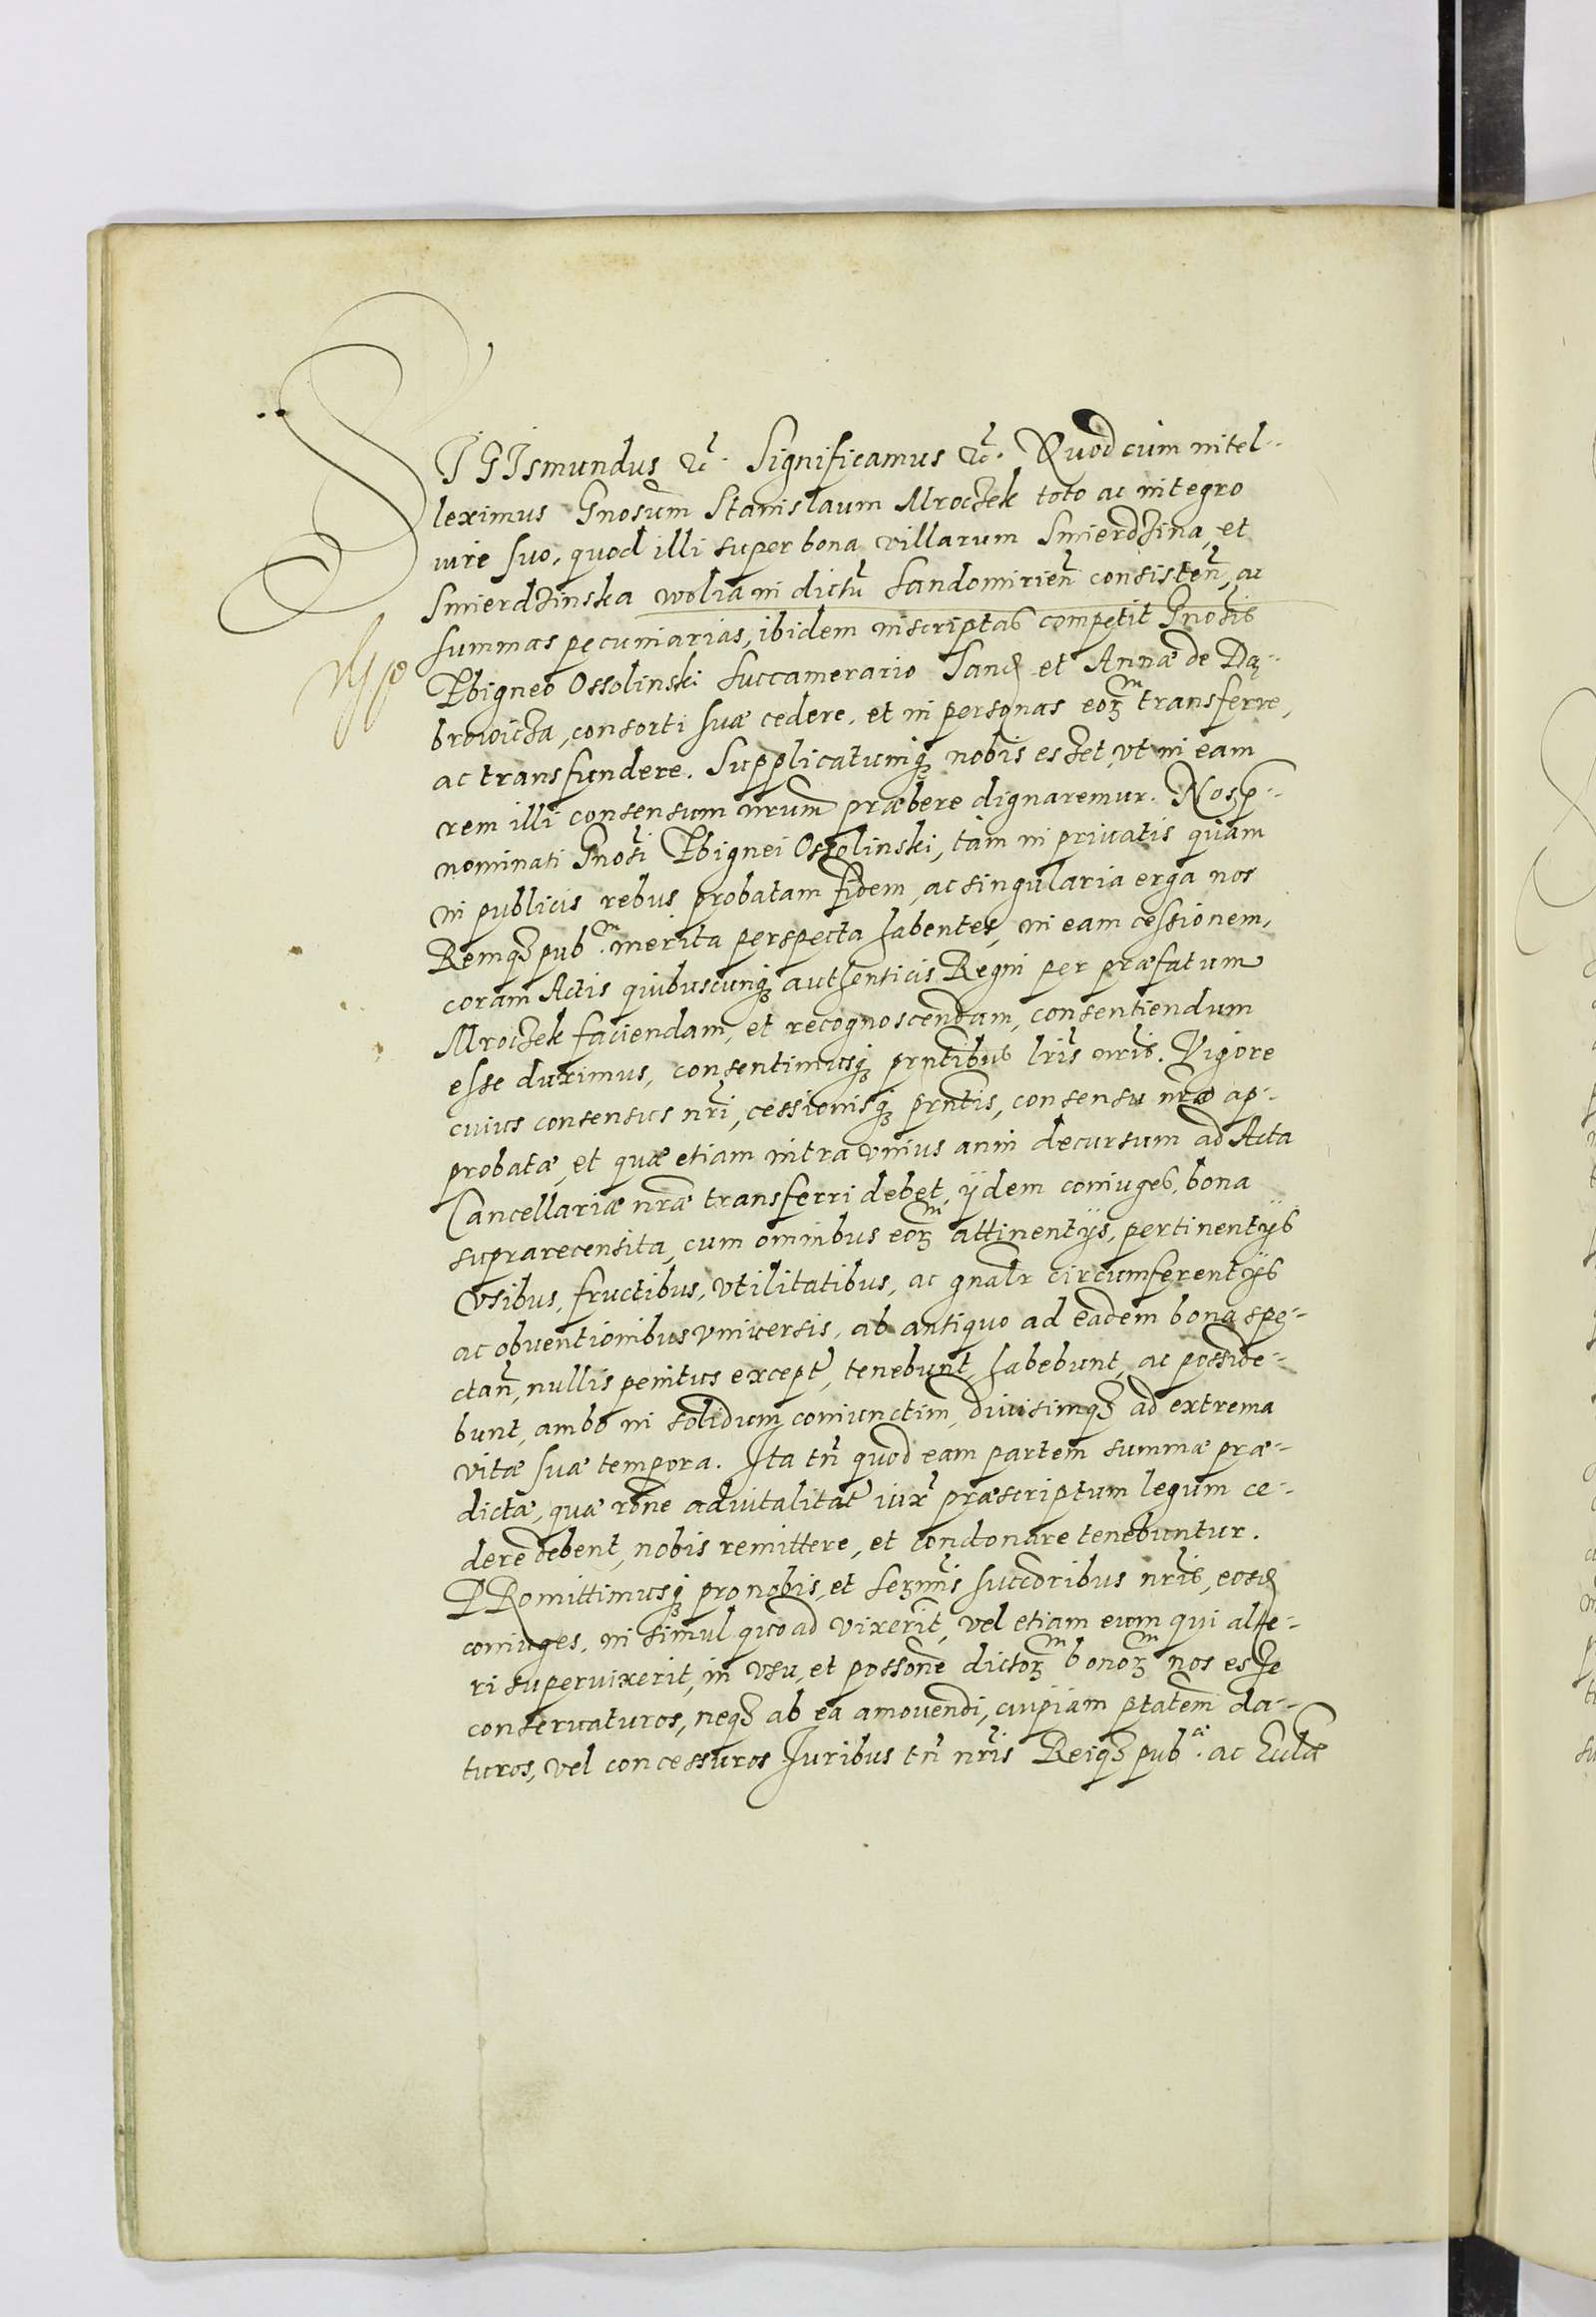 SIGIsmundus etc. Significamus etc. Quod cum intel-
leximus Gnosum Stanislaum Mroczek toto ac integro
iure suo, quod illi super bona villarum Smierdzina, et
Smierdzinska wolia in distu Sandomirien consisten, ac
summas pecuniarias, ibidem inscriptas competit Gnosis
Zbigneo Ossolinski Succamerario Sand et Annæ de Dą-
browicza, consorti suæ cedere, et in personas eorum transferre,
ac transfundere. Supplicatumq nobis esset, vt in eam
rem illi consensum nrum præbere dignaremur. Nos p-
nominati Gnosi Zbignei Ossolinski, tam in priuatis quam
in publicis rebus probatam fidem, ac singularia erga nos
Remq pubm merita perspecta habentes, in eam cessionem,
coram Actis quibuscunq authenticis Regni per præfatum
Mroczek faciendam, et recognoscendam, consentiendum
esse duximus, consentimusq prntibus lris nris. Vigore
cuius consensus nri, cessionisq prntis, consensu nro ap-
probatæ, et quæ etiam intra vnius anni decursum ad Acta
Cancellariæ nræ transferri debet, ijdem coniuges, bona
suprarecensita, cum omnibus eorum attinentijs, pertinentijs
vsibus, fructibus, vtilitatibus, ac gnalr circumferentijs
ac obuentionibus vniuersis, ab antiquo ad eadem bona spe-
ctan, nullis penitus except, tenebunt, habebunt, ac posside-
bunt, ambo in solidum, coniunctim, diuisimq ad extrema
vitæ suæ tempora. Ita tn quod eam partem summæ præ-
dictæ, quæ rone aduitalitat iux præscriptum legum ce-
dere debent, nobis remittere, et condonare tenebuntur.
PRomittimusq pro nobis, et sermis succoribus nris, eosd
coniuges, in simul quoad vixerit, vel etiam eum qui alte-
ri superuixerit, in vsu, et possone dictorum bonorum nos esse
conseruaturos, neq ab ea amouendi, cuipiam ptatem da-
turos, vel concessuros Iuribus tn nris Reiq pub.æ ac Ecclæ